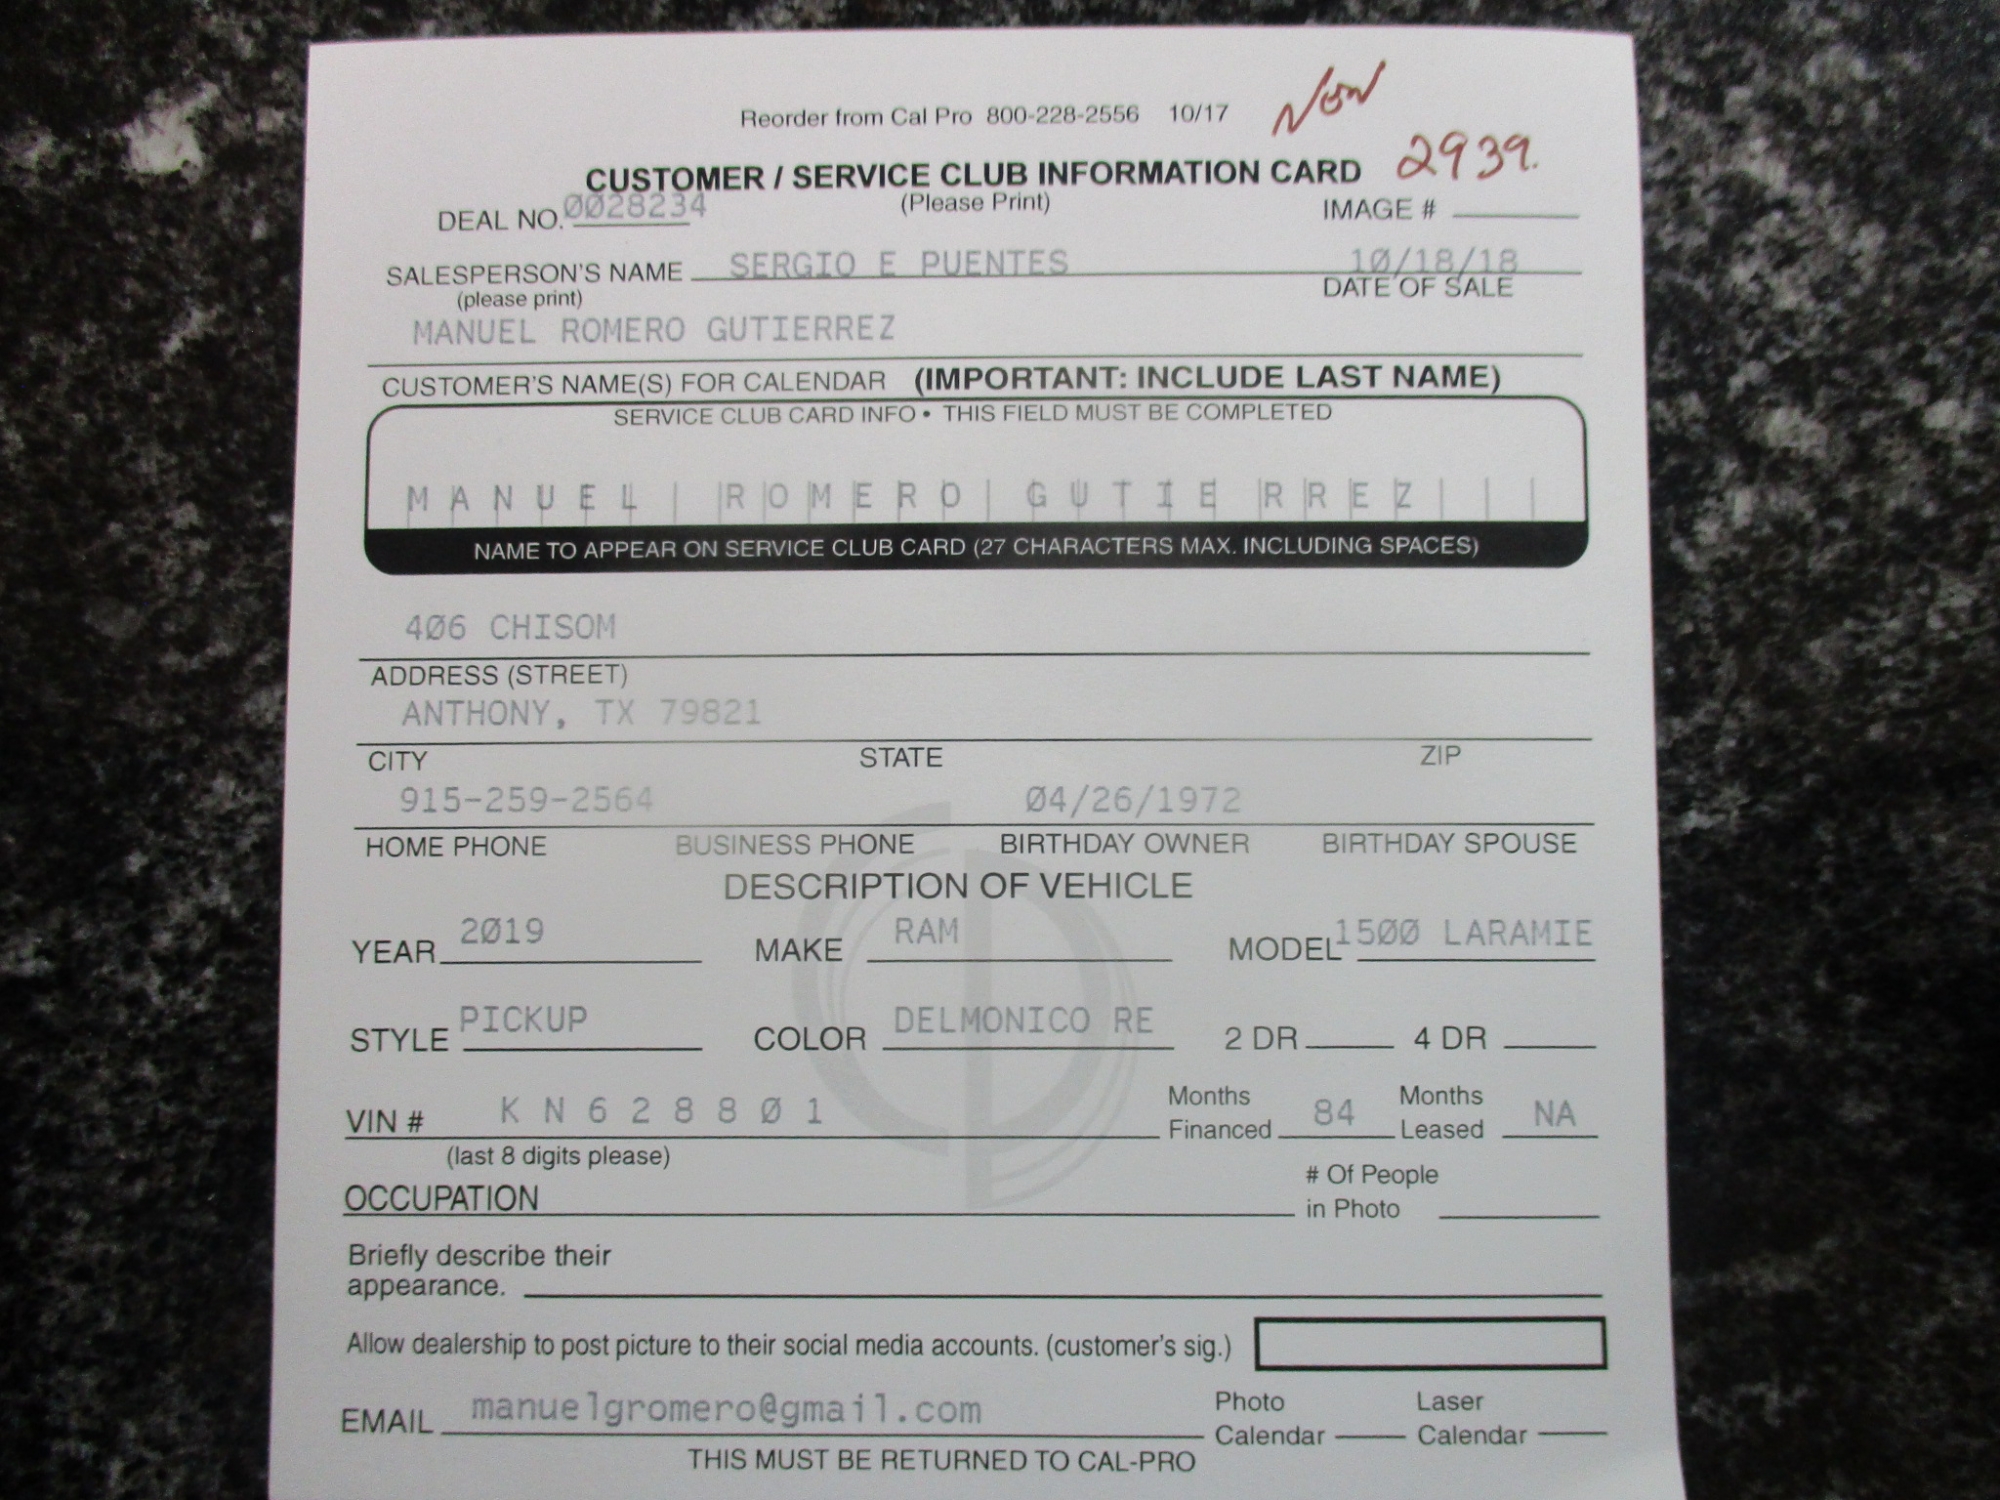 Reorder from Cal Pro 800-228-2556 10/17
New
CUSTOMER / SERVICE CLUB INFORMATION CARD 2939.
DEAL NO. 0028234 (Please Print) IMAGE #
SALESPERSON'S NAME SERGIO E PUENTES 10/18/18
(please print) DATE OF SALE
MANUEL ROMERO GUTIERREZ
CUSTOMER'S NAME(S) FOR CALENDAR (IMPORTANT: INCLUDE LAST NAME)
SERVICE CLUB CARD INFO • THIS FIELD MUST BE COMPLETED
MANUEL ROMERO GUTIERREZ
NAME TO APPEAR ON SERVICE CLUB CARD (27 CHARACTERS MAX. INCLUDING SPACES)
406 CHISOM
ADDRESS (STREET)
ANTHONY, TX 79821
CITY STATE ZIP
915-259-2564 04/26/1972
HOME PHONE BUSINESS PHONE BIRTHDAY OWNER BIRTHDAY SPOUSE
DESCRIPTION OF VEHICLE
YEAR 2019 MAKE RAM MODEL 1500 LARAMIE
STYLE PICKUP COLOR DELMONICO RE 2 DR 4 DR
VIN # KN628801 Months Financed 84 Months Leased NA
(last 8 digits please)
OCCUPATION # Of People in Photo
Briefly describe their
appearance.
Allow dealership to post picture to their social media accounts. (customer's sig.)
EMAIL manuelgromero@gmail.com Photo Calendar Laser Calendar
THIS MUST BE RETURNED TO CAL-PRO